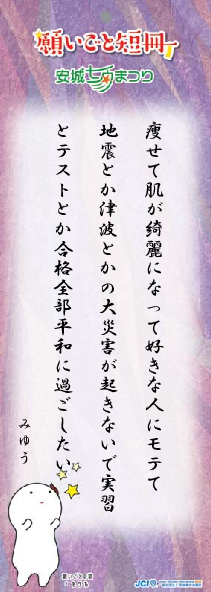 願いごと短冊
安城七夕まつり
痩せて肌が綺麗になって好きな人にモテて
地震とか津波とかの大災害が起きないで実習
とテストとか合格全部平和に過ごしたい
みゆう
JCI